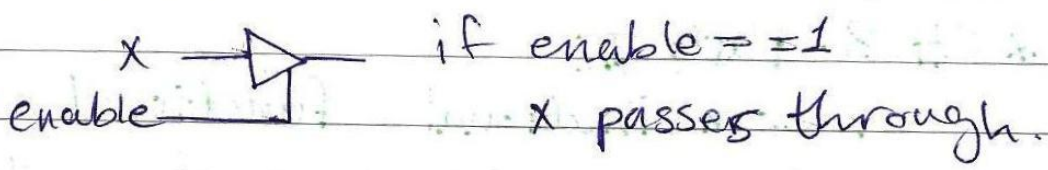 x if enable==1
enable x passes through.